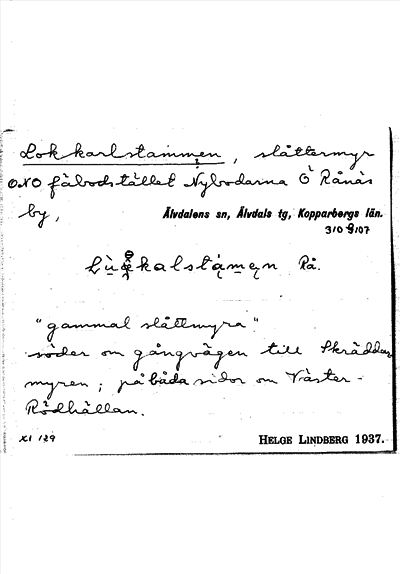 Lokkarlstammen, slåttermyr
ONO fäbodstället Nybodarna Ö Rånäs
by, Älvdalens sn, Älvdals tg, Kopparbergs län.
310 9107
Rå.
"gammal slåttmyra"
söder om gångvägen till Skräddar
myren; på båda sidor om Väster-
Rödhällan.
XI 129 HELGE LINDBERG 1937.